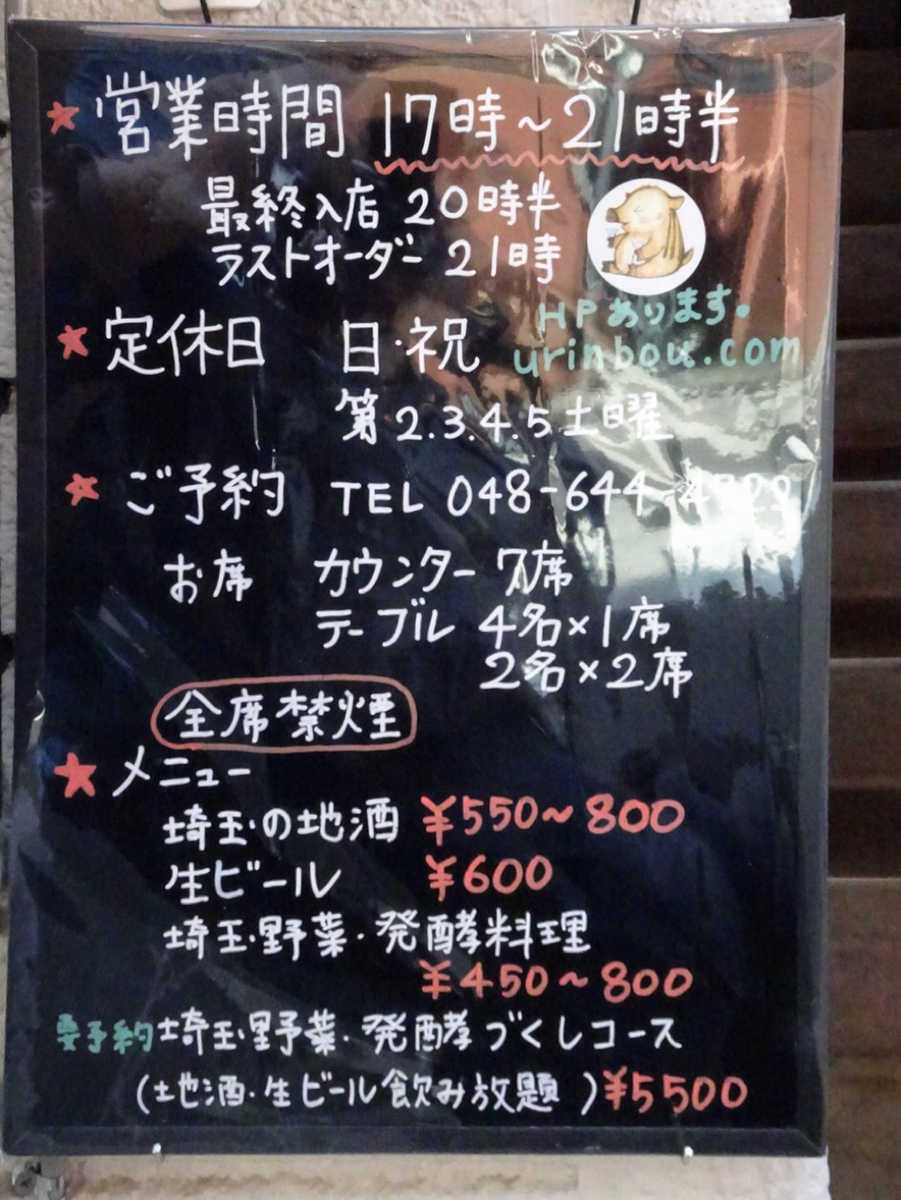 ★営業時間 17時～21時半
最終入店 20時半
ラストオーダー 21時
HPあります。
urinbou.com
★定休日 日・祝
第2.3.4.5土曜
★ご予約 TEL 048-644-
お席 カウンター 7席
テーブル 4名×1席
2名×2席
全席禁煙
★メニュー
埼玉の地酒 ¥550～800
生ビール ¥600
埼玉野菜・発酵料理
¥450～800
要予約 埼玉野菜・発酵づくしコース
(地酒・生ビール飲み放題)¥5500